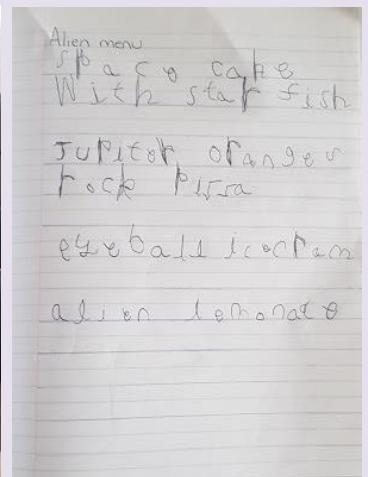 Alien menu
space cake
With star fish
Jupitor oranges
rock pissa
eyeball icecram
alien lemonate